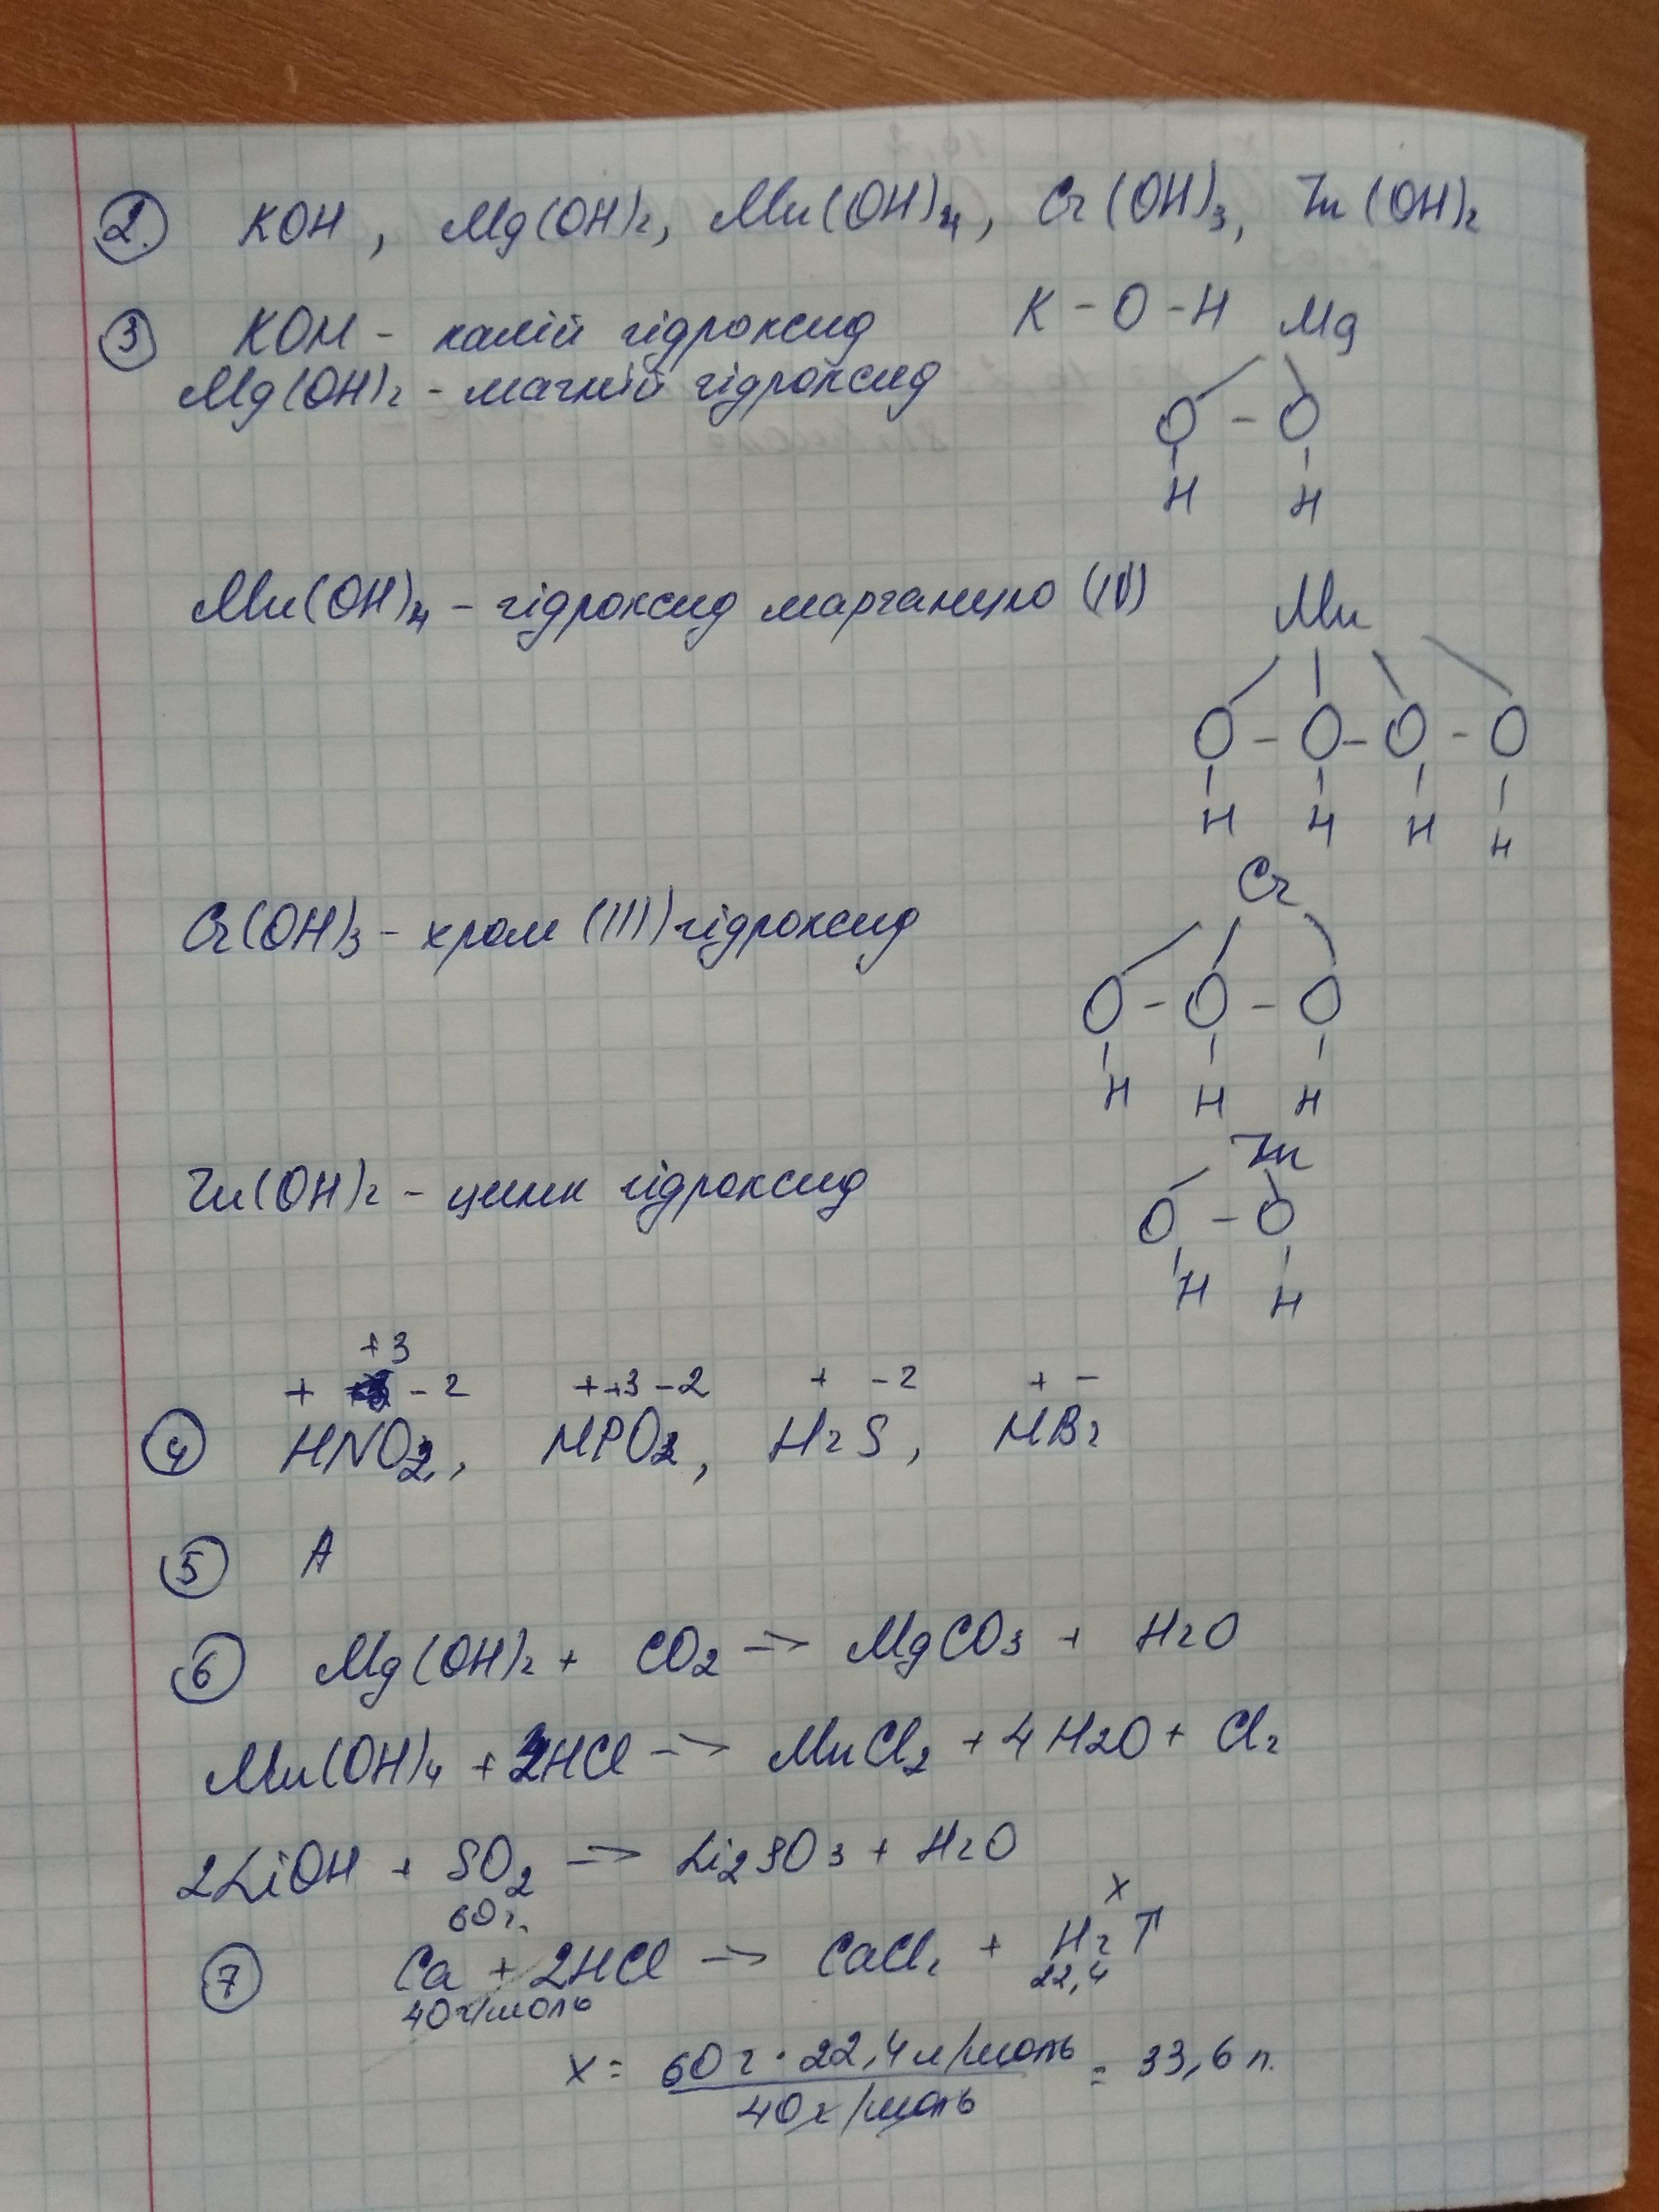 2. KOH, Mg(OH)2, Mn(OH)4, Cr(OH)3, Zn(OH)2
3 KOH - калій гідроксид K - O - H Mg
Mg(OH)2 - магній гідроксид
O - O
H H
Mn(OH)4 - гідроксид марганцю (IV) Mn
O - O - O - O
H H H H
Cr
Cr(OH)3 - хром (III) гідроксид
O - O - O
H H H
Zn
Zn(OH)2 - цинк гідроксид
O - O
H H
+3
+ -2 + +3 -2 + -2 + -
4 HNO2, HPO2, H2S, HBr
5 A
6 Mg(OH)2 + CO2 -> MgCO3 + H2O
Mn(OH)4 + HCl -> MnCl2 + 4H2O + Cl2
2LiOH + SO2 -> Li2SO3 + H2O
60 г. x
7 Ca + 2HCl -> CaCl2 + H2↑
40 г/моль 22,4
x = 60 г · 22,4 л/моль = 33,6 л.
40 г/моль